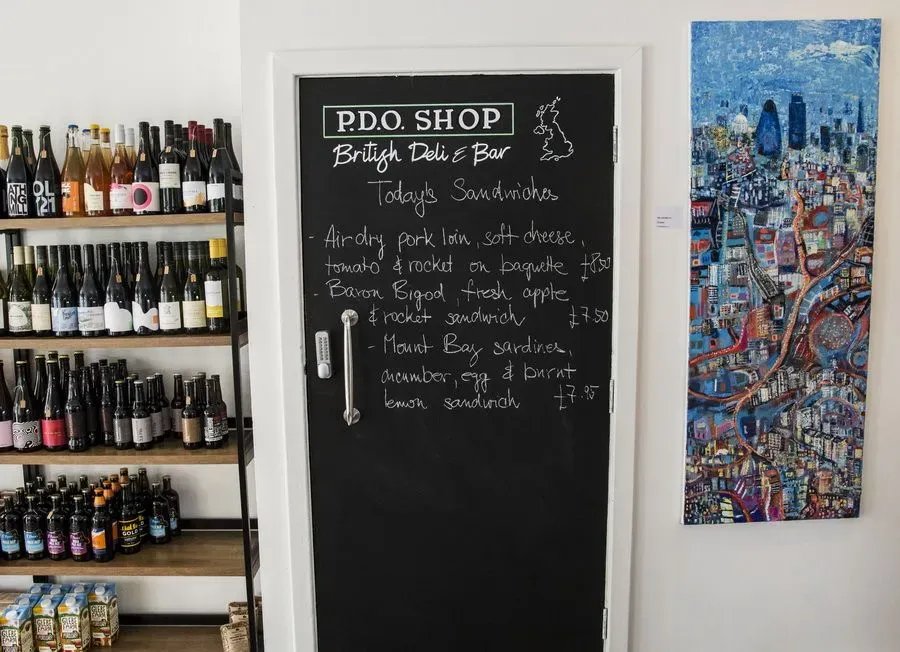 P.D.O. SHOP
British Deli & Bar
Today's Sandwiches
- Airdry pork loin, soft cheese,
tomato & rocket on baguette £8.50
- Baron Bigod, fresh apple
& rocket sandwich £7.50
- Mount Bay sardines,
cucumber, egg & burnt
lemon sandwich £7.95
GOLD
GLEBE FARM